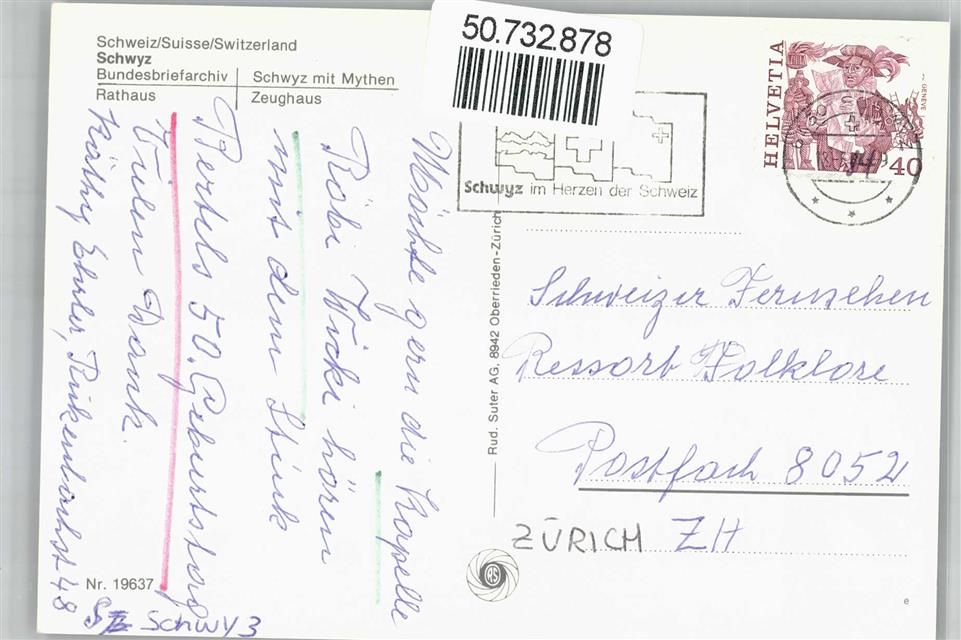 Schweiz/Suisse/Switzerland
Schwyz
Bundesbriefarchiv
Rathaus
Schwyz mit Mythen
Zeughaus
50.732.878
HELVETIA
GENÈVE
40
Schwyz im Herzen der Schweiz
Möchte gern die Kapelle
Röbi Wicki hören
mit dem Stück
Bertels 50. Geburtstag
Vielen Dank.
Käthy Ehrler, Rickenbachst 48
Schwyz
Nr. 19637
Rud. Suter AG, 8942 Oberrieden-Zürich
RS
Schweizer Fernsehen
Ressort Folklore
Postfach 8052
ZÜRICH ZH
e